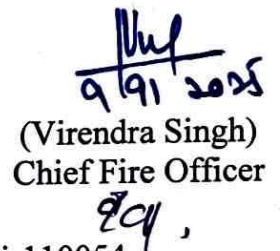 9/9/2025
(Virendra Singh)
Chief Fire Officer
110054